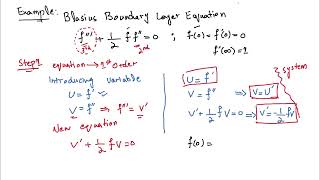 Example: Blasius Boundary Layer Equation
f''' + 1/2 f f'' = 0 ; f(0) = f'(0) = 0
3rd 2nd f'(∞) = 1
Step1 equation → 1st Order
Introducing variable
U = f'
V = f'' ⇒ f''' = V'
New equation
V' + 1/2 f V = 0
U = f'
V = f'' ⇒ V = U'
V' + 1/2 f V = 0 ⇒ V' = -1/2 f V
system
f(0) =